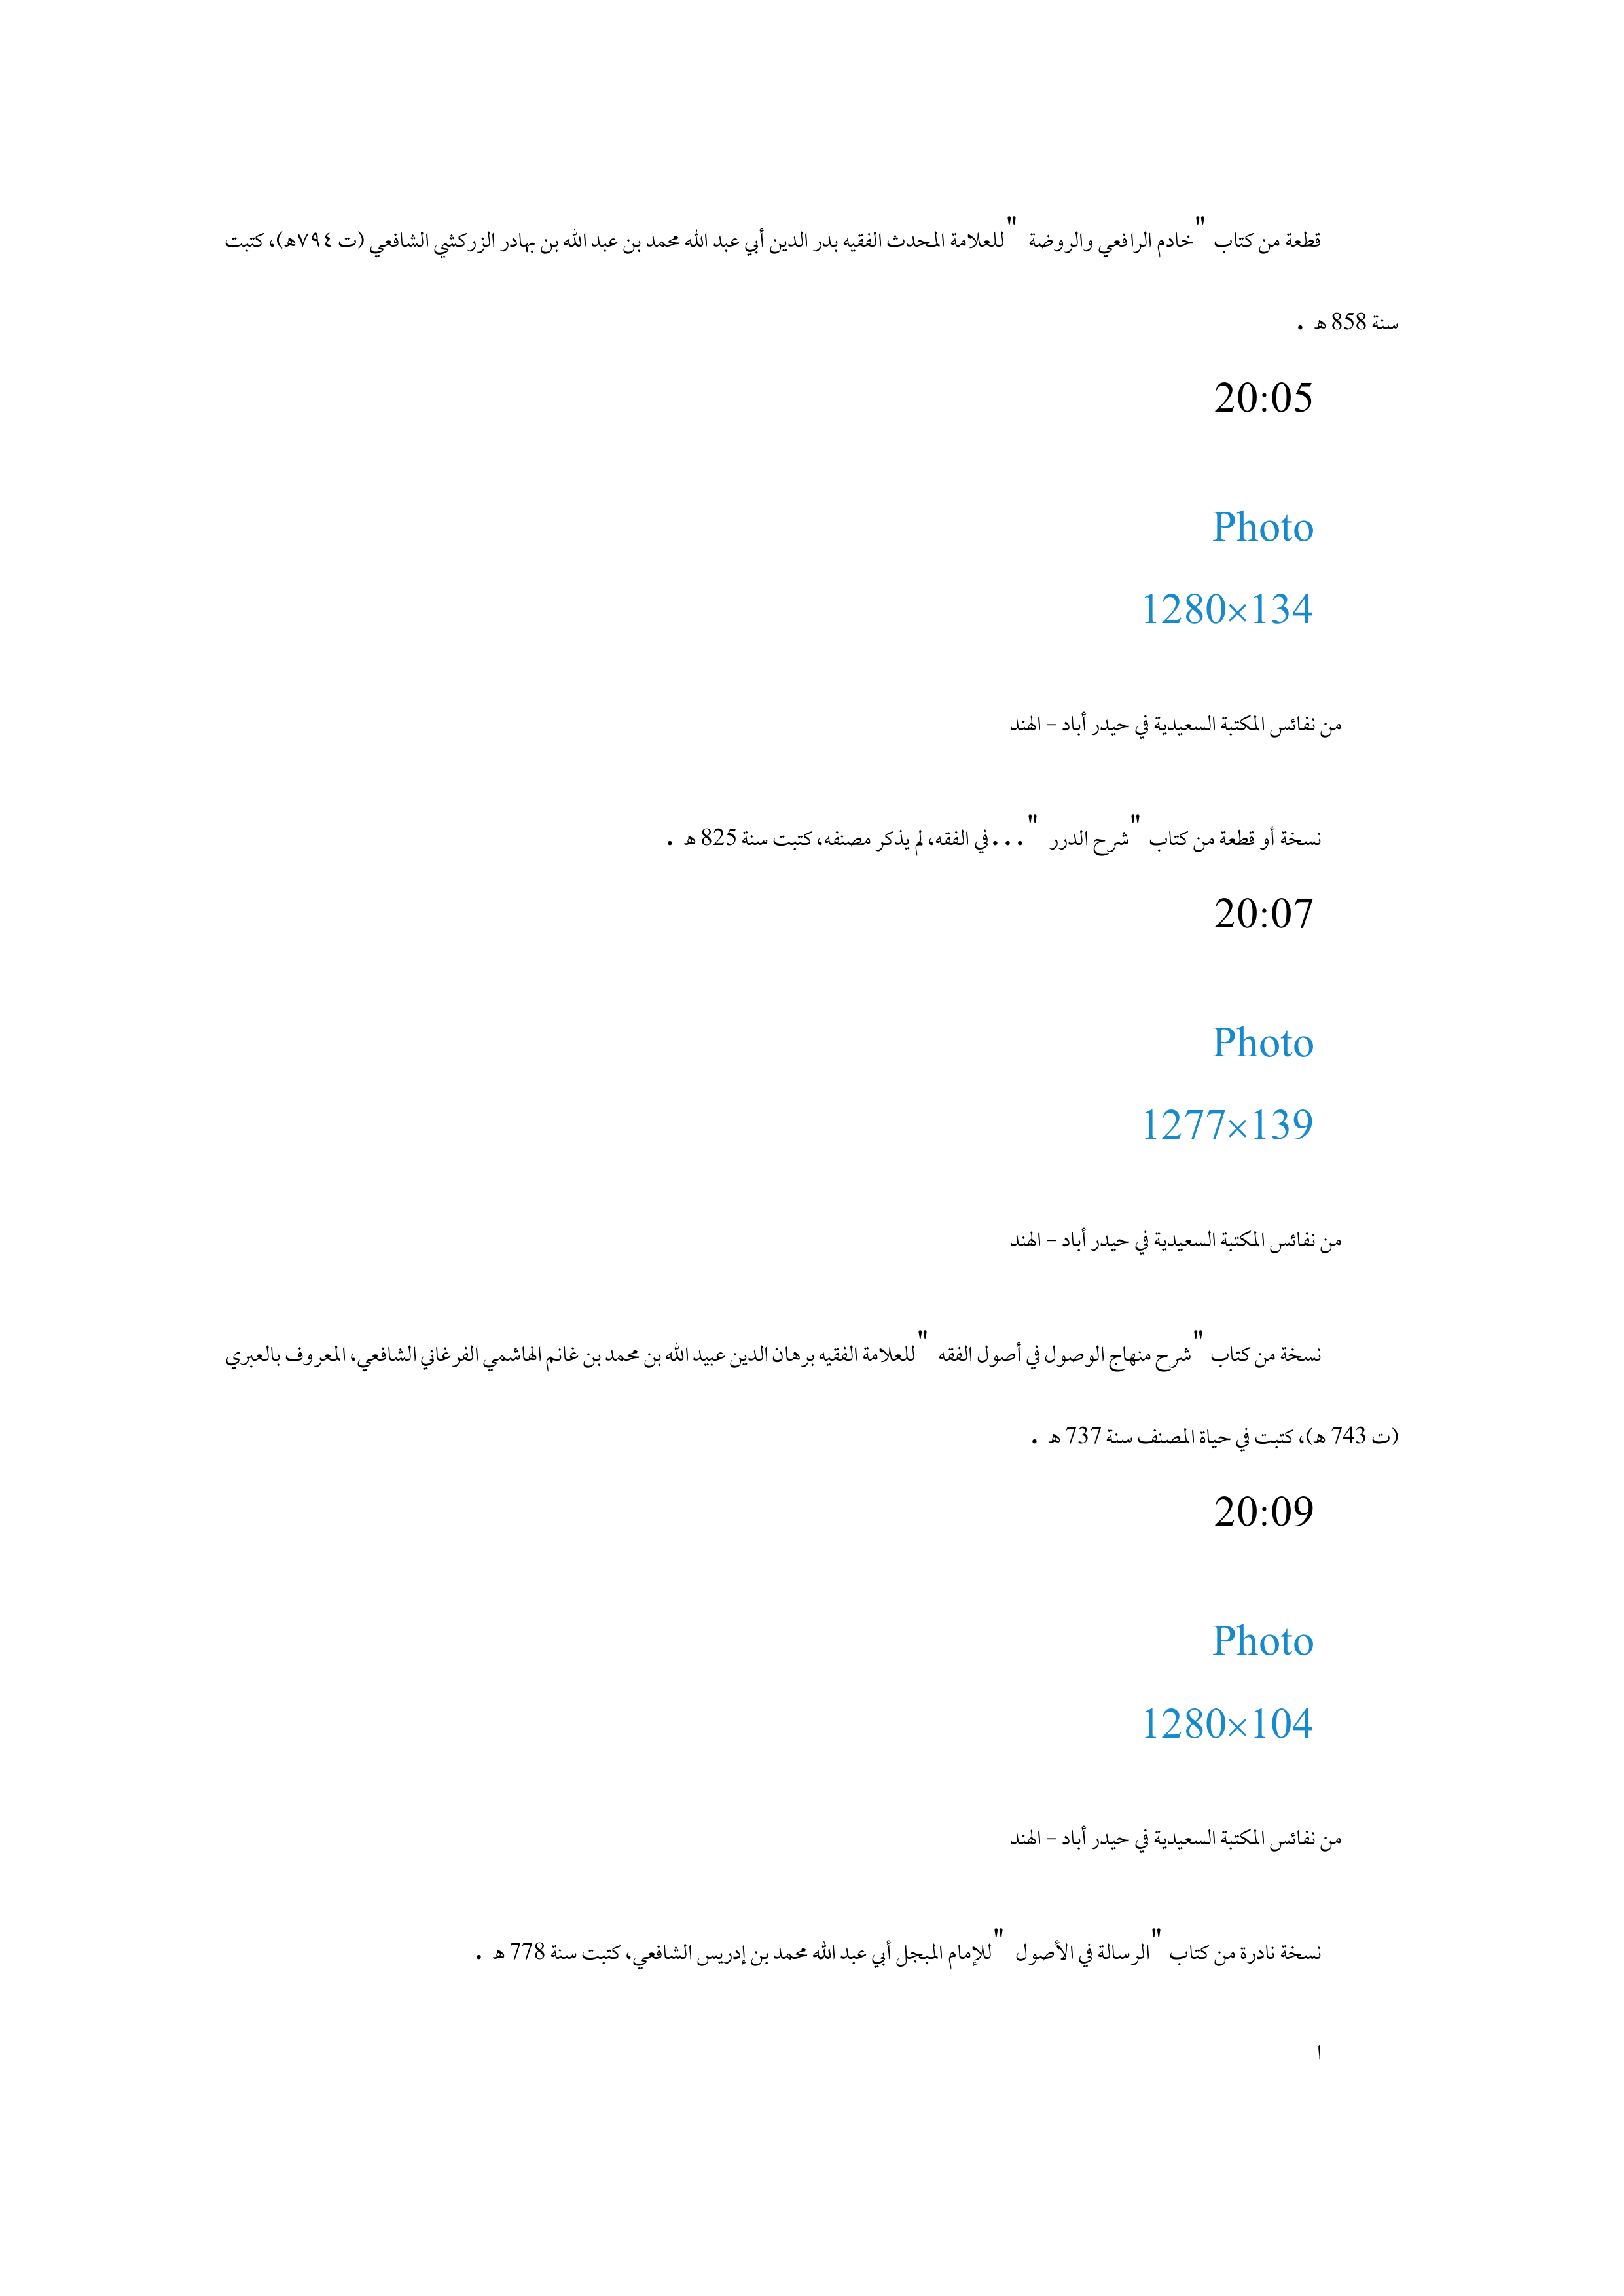 قطعة من كتاب "خادم الرافعي والروضة " للعلامة المحدث الفقيه بدر الدين أبي عبد الله محمد بن عبد الله بن بهادر الزركشي الشافعي (ت ٧٩٤هـ)، كتبت
سنة 858 هـ .
20:05
Photo
1280×134
من نفائس المكتبة السعيدية في حيدر أباد – الهند
نسخة أو قطعة من كتاب "شرح الدرر "...في الفقه، لم يذكر مصنفه، كتبت سنة 825 هـ .
20:07
Photo
1277×139
من نفائس المكتبة السعيدية في حيدر أباد – الهند
نسخة من كتاب "شرح منهاج الوصول في أصول الفقه " للعلامة الفقيه برهان الدين عبيد الله بن محمد بن غانم الهاشمي الفرغاني الشافعي، المعروف بالعبري
(ت 743 هـ)، كتبت في حياة المصنف سنة 737 هـ .
20:09
Photo
1280×104
من نفائس المكتبة السعيدية في حيدر أباد – الهند
نسخة نادرة من كتاب "الرسالة في الأصول " للإمام المبجل أبي عبد الله محمد بن إدريس الشافعي، كتبت سنة 778 هـ .
ا